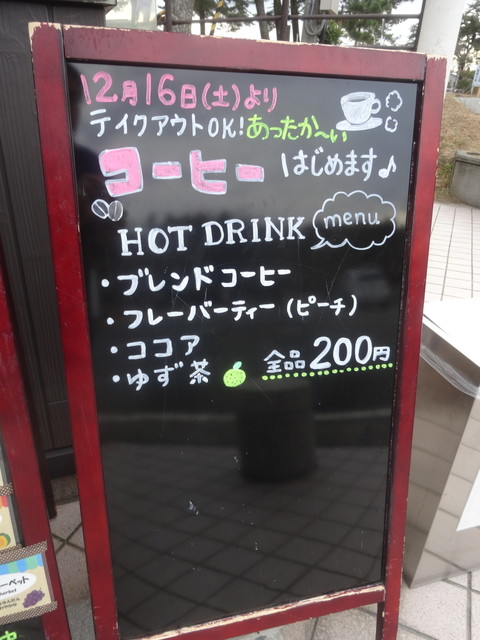 12月16日(土)より
テイクアウトOK!あったか〜い
コーヒー はじめます♪
HOT DRINK menu
・ブレンドコーヒー
・フレーバーティー(ピーチ)
・ココア
・ゆず茶 全品200円
ーベット